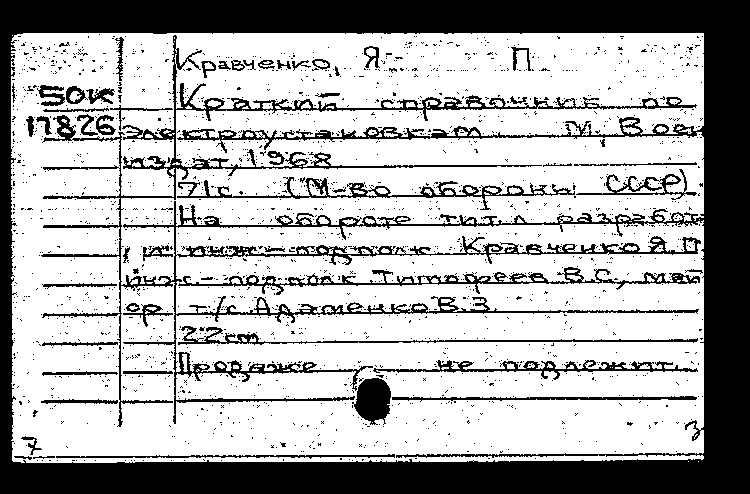 Кравченко, Я П
50к Краткий справочник по
17826 электроустановкам М, Воен
издат, 1968
71с. (М-во обороны СССР).
На обороте тит.л разработ
инж-подполк Кравченко Я.П
инж-подполк Тимофеев В.С, май
ор т/с Адаменко В.З
22cm
Продаже не подлежит.
7 3